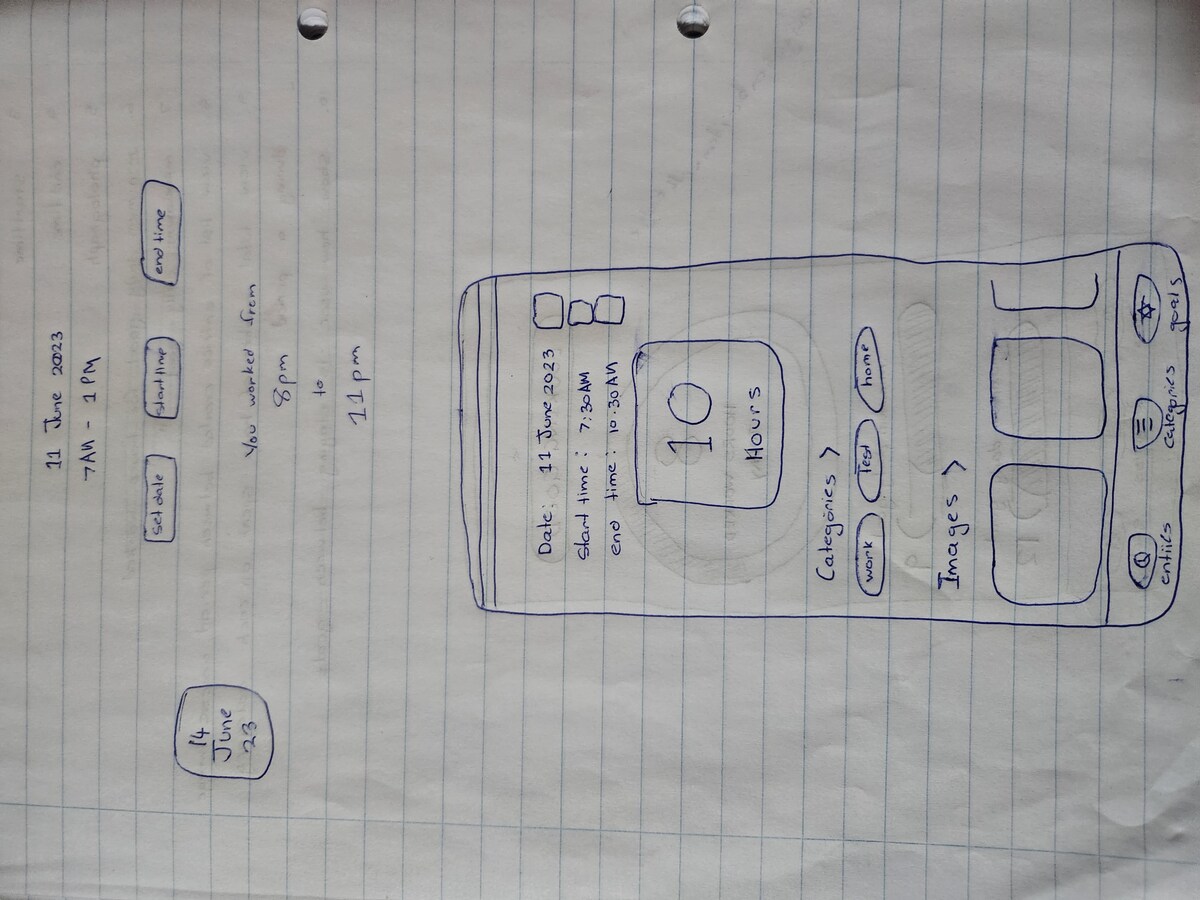 11 June 2023
7AM - 1PM
set date
start time
end time
14
June
23
You worked from
8pm
to
11pm
Date: 11 June 2023
Start time: 7:30AM
end time: 10:30AM
10
Hours
Categories >
work
Test
home
Images >
entiies
categories
goals